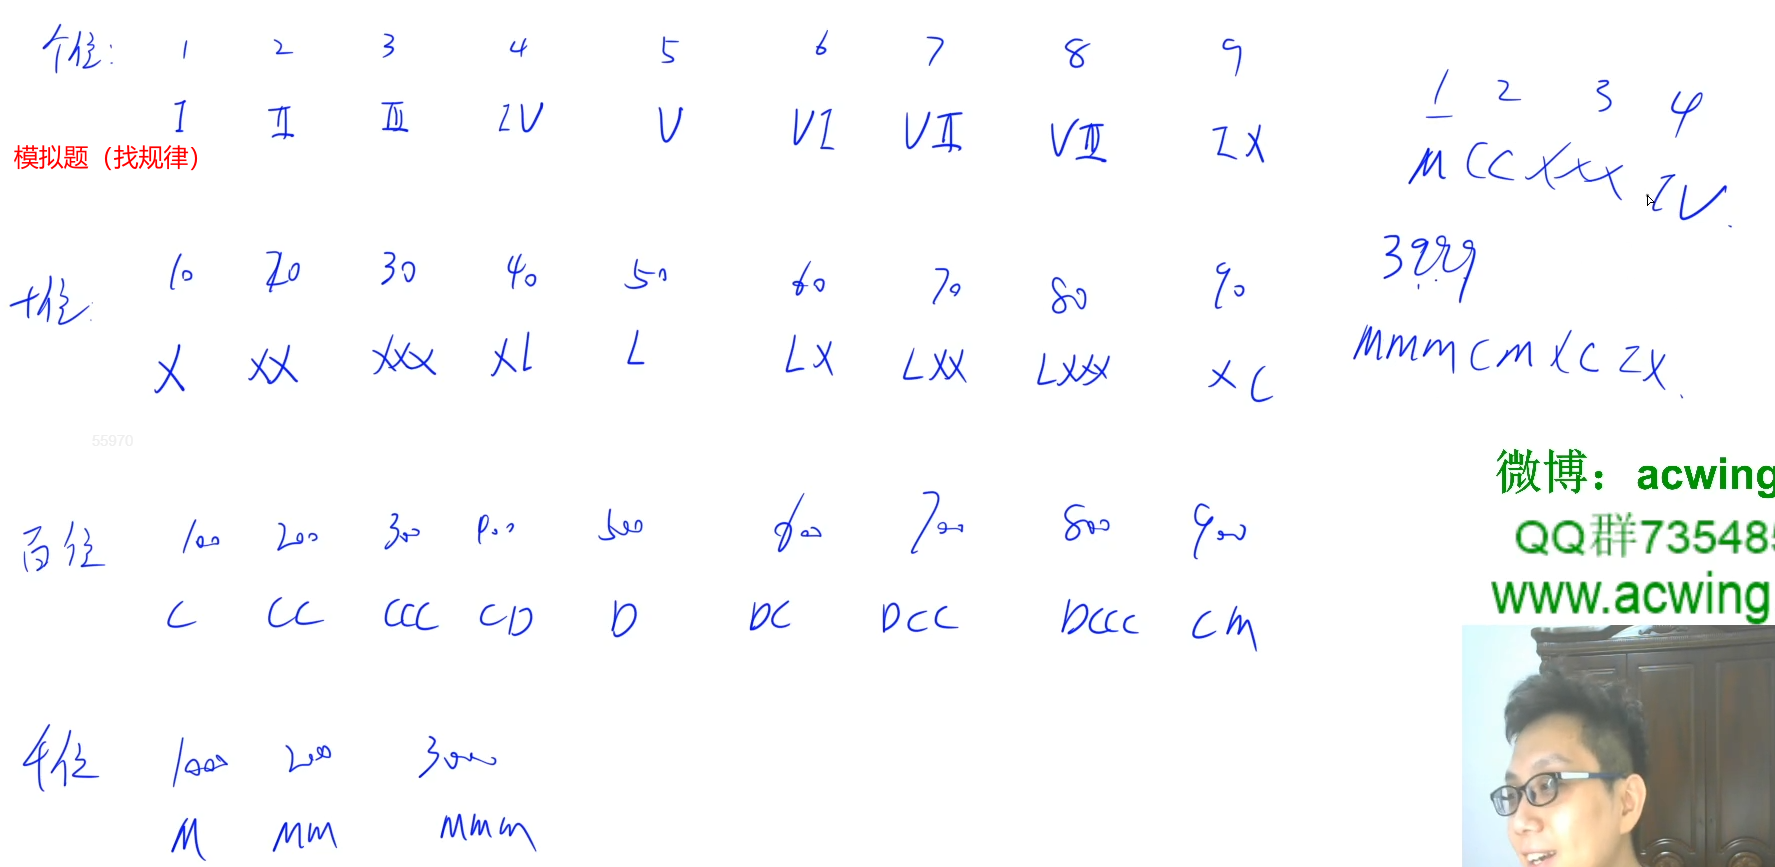 个位: 1 2 3 4 5 6 7 8 9
I II III IV V VI VII VIII IX
模拟题（找规律）
十位: 10 20 30 40 50 60 70 80 90
X XX XXX XL L LX LXX LXXX XC
55970
百位 100 200 300 400 500 600 700 800 900
C CC CCC CD D DC DCC DCCC CM
千位 1000 2000 3000
M MM MMM
1 2 3 4
M CC XXX IV
3999
MMM CM XC IX
微博：acwing
QQ群73548
www.acwing